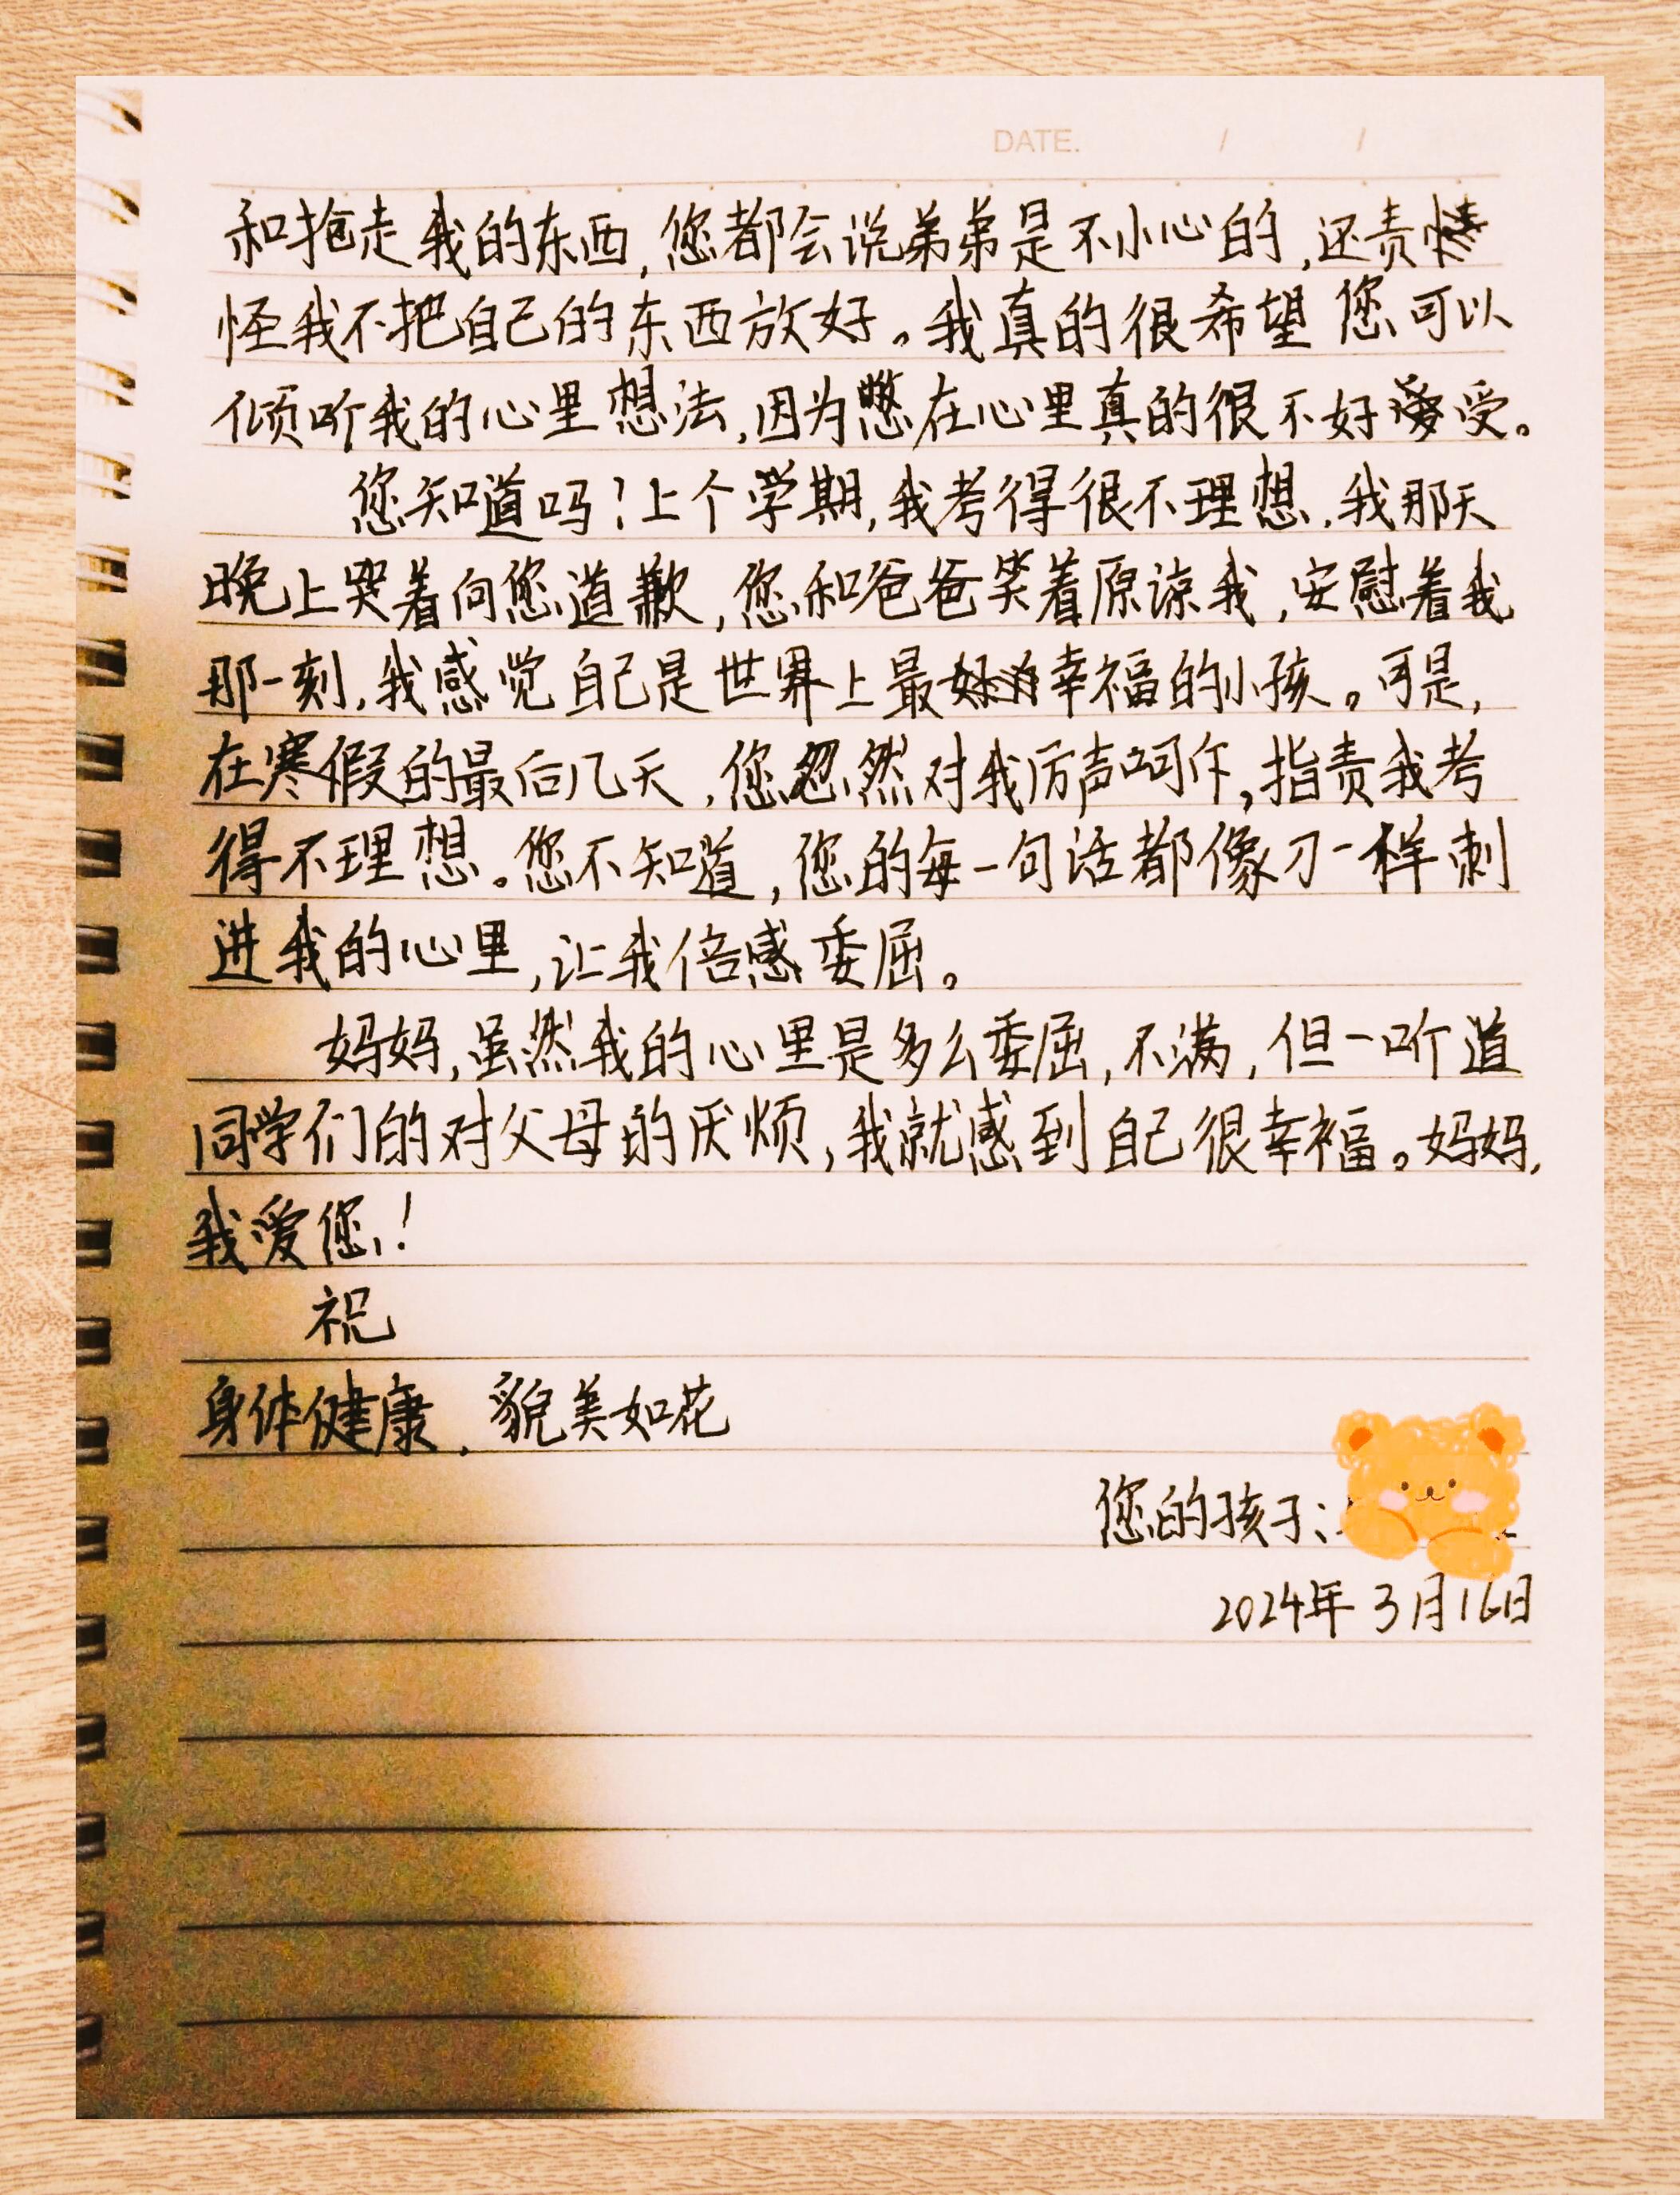 DATE. / /
和抢走我的东西,您都会说弟弟是不小心的,还责
怪我不把自己的东西放好。我真的很希望您可以
倾听我的心里想法,因为憋在心里真的很不好受。
您知道吗?上个学期,我考得很不理想,我那天
晚上哭着向您道歉,您和爸爸笑着原谅我,安慰着我
那一刻,我感觉自己是世界上最幸福的小孩。可是,
在寒假的最后几天,您忽然对我厉声呵斥,指责我考
得不理想。您不知道,您的每一句话都像刀一样刺
进我的心里,让我倍感委屈。
妈妈,虽然我的心里是多么委屈,不满,但一听道
同学们的对父母的厌烦,我就感到自己很幸福。妈妈,
我爱您!
祝
身体健康,貌美如花
您的孩子:
2024年3月16日